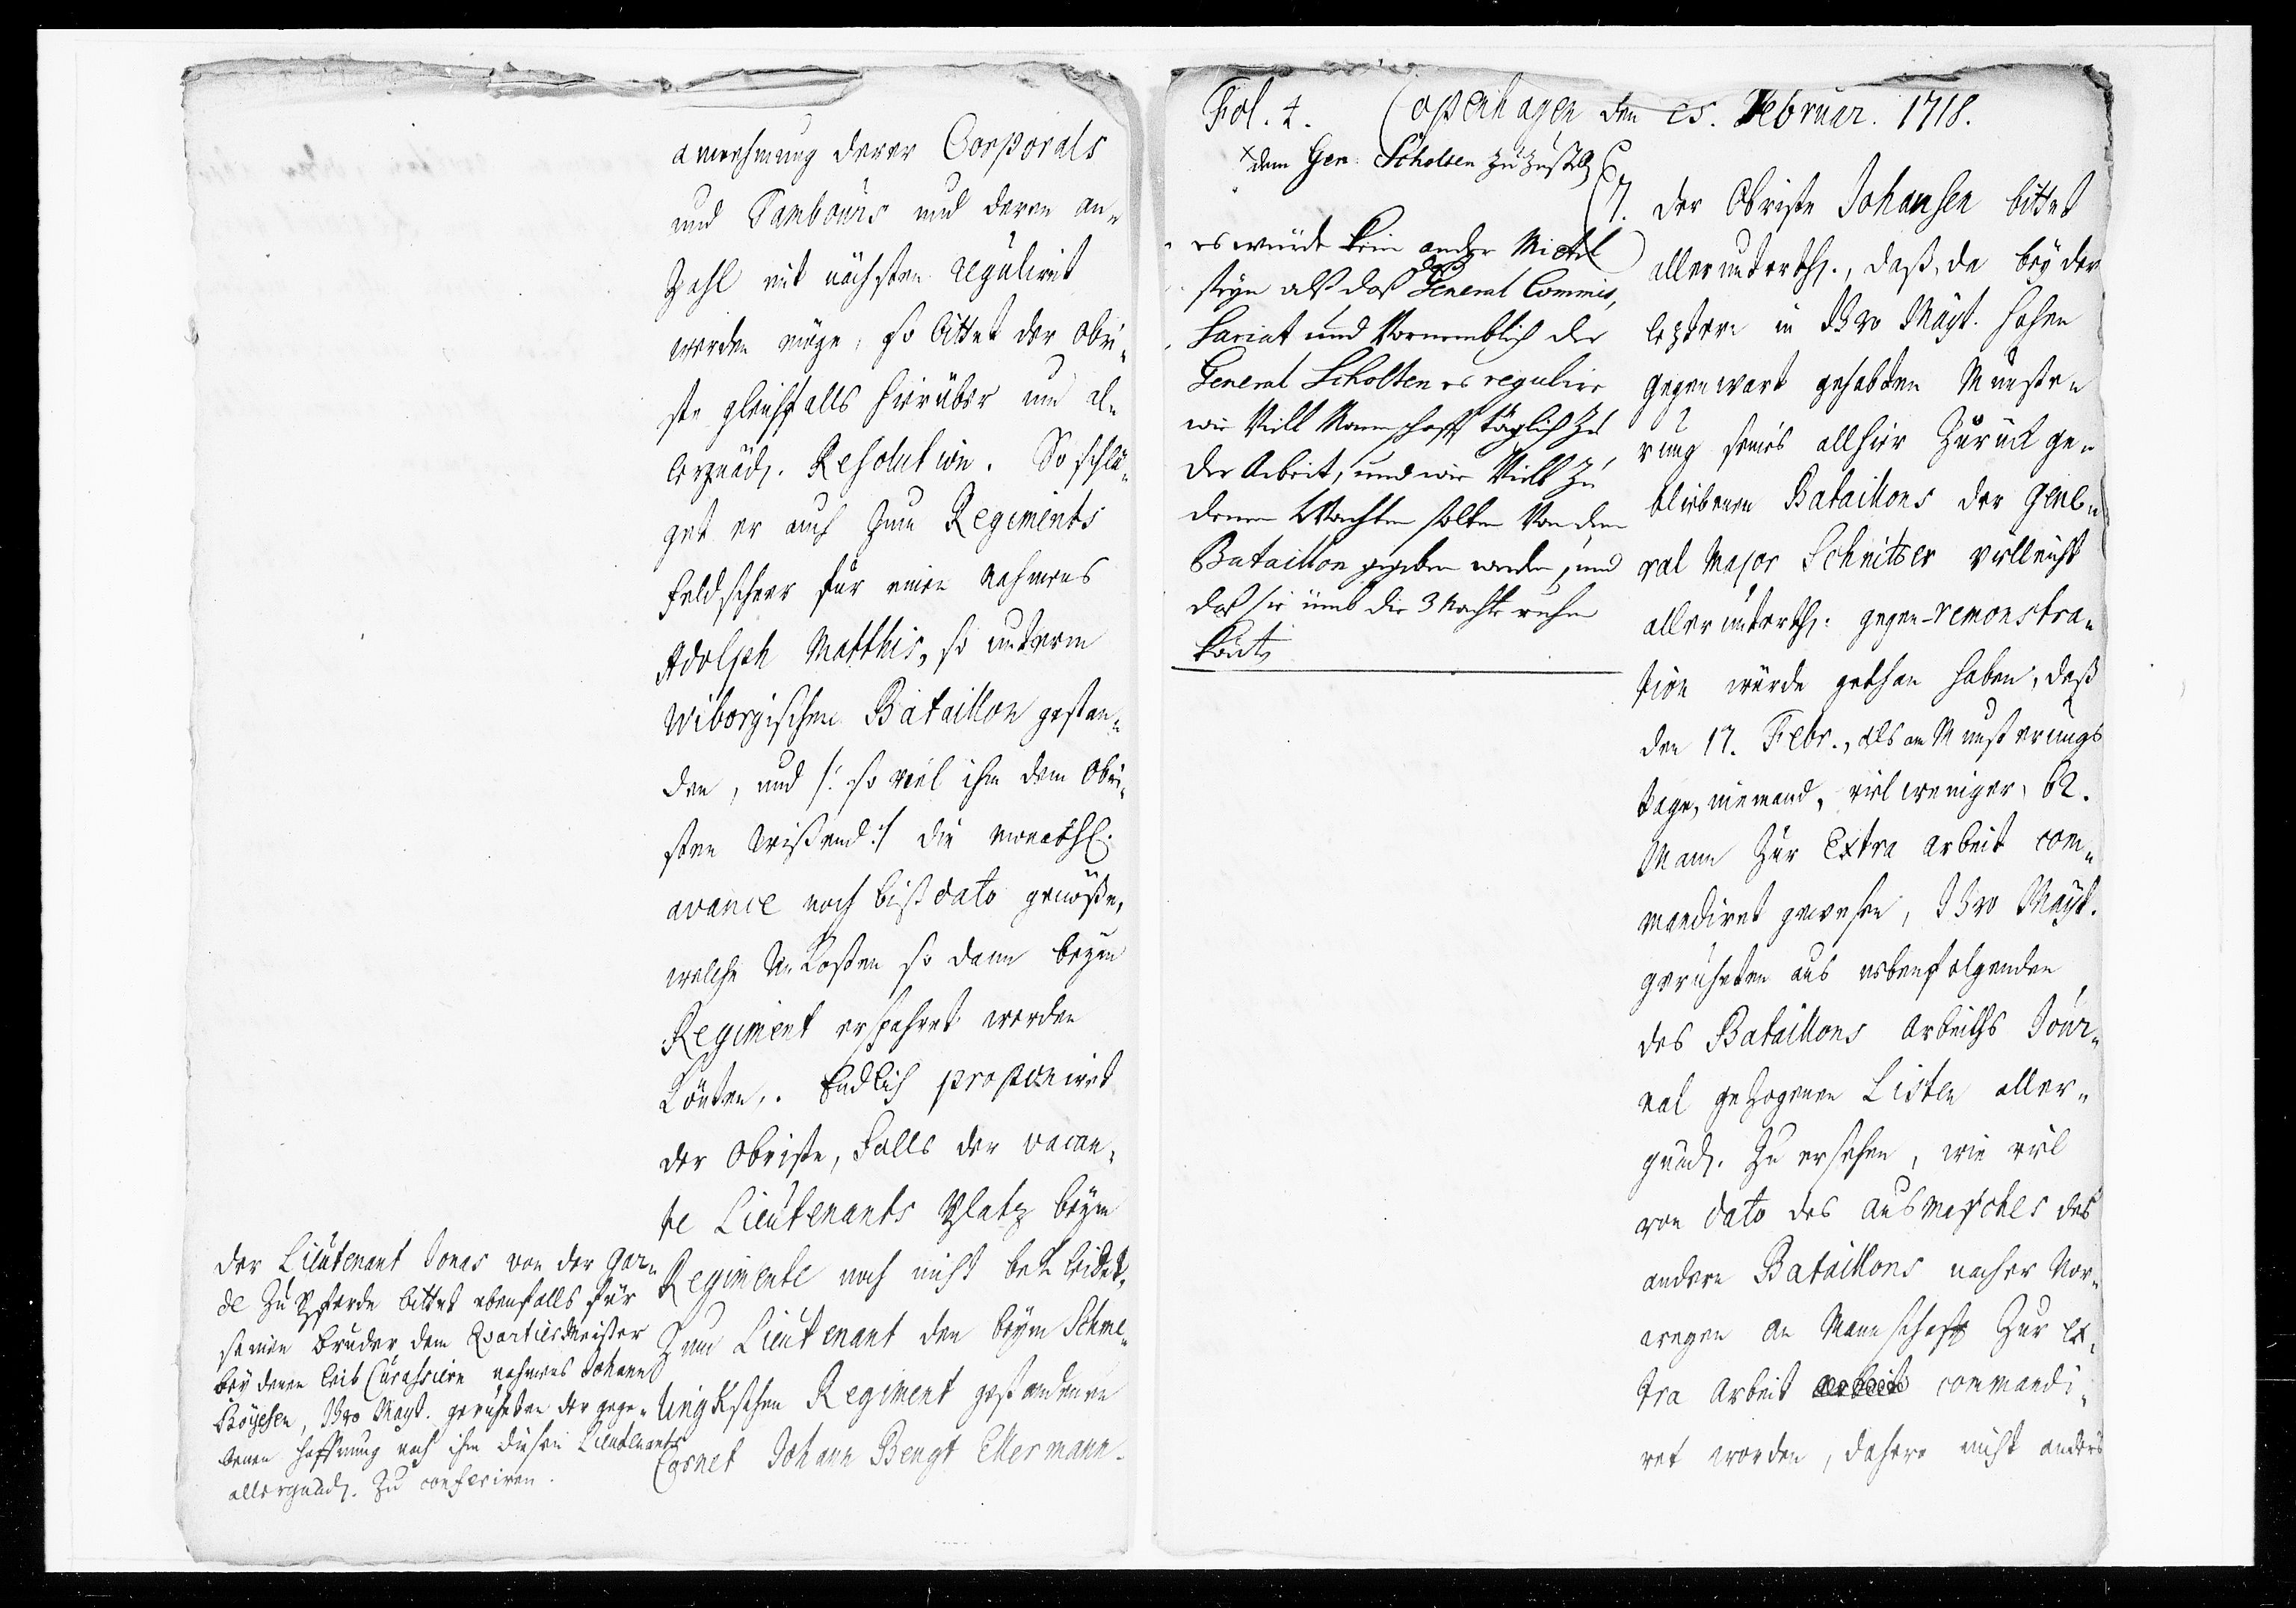 annehmung derer Corporals
und Tambours und deren an-
zahl mit nächsten reguliret
werden möge, so bittet der Obri-
ste gleichfalls hierüber um al-
lergnäd. Resolution. So schlä-
get er auch zum Regiments
Feldscheer für einen Nahmens
Adolph Matthis, so unterm
Wiborgischen Bataillon gestan-
den, und /: so viel ihm dem Obri-
sten wißend :/ die monathl.
avance noch biß dato genöße,
welche Unkosten so dann beym
Regiment erspahret werden
könten. Endlich proponiret
der Obriste, Falls der vacan-
te Lieutenants Platz beym
Regimente noch nicht bekleidet,
zum Lieutenant den beym Schme-
Cornet Johann Bengt Ellermann.
Der Lieutenant Jonas von der Gar-
de zu Pferde bittet ebenfalls für
seinen Bruder dem Quartiermeister
bey denen Leib Curassiern nahmens Johann
Böyesen, Ihro Mayt. geruheten der gege-
benen Hoffnung nach ihm diesen Lieutenants
allergnäd. zu conferiren.
Fol. 4. Copenhagen den 25. Februar. 1718.
x dem Gen. Scholten zu
es würde kein ander Mittel
seyn alß daß das General Commis-
sariat und Vornemblich der
General Scholten es regulire
wie Viell Mannschaft täglich zu
der Arbeit, und wie Viell zu
denen Wachten solten Von dem
Bataillon gegeben werden, und
daß sie umb die 3 Nachte ruhen
könt
7. Der Obriste Johansen bittet
allerunterth., daß, da bey der
leztern in Ihro Mayt. hohen
gegenwart gehabten Munste-
rung seines allhier zurück ge-
bliebenen Bataillons der Gene-
ral Major Schnitter vielleicht
allerunterth. gegen-remonstra-
tion würde gethan haben, daß
den 17. Febr., als am Munsterungs
tage, niemand, viel weniger, 62.
Mann zur Extra arbeit com-
mandiret gewesen, Ihro Mayt.
geruheten aus nebenfolgenden
des Bataillons Arbeits Jour-
nal gezogenen Listen aller-
gnäd. zu ersehen, wie viel
von dato des ausmarsches des
andern Bataillons nacher Nor-
wegen an Mannschaft zur ex-
tra arbeit arbeit commandi-
ret worden, dahero nicht anders